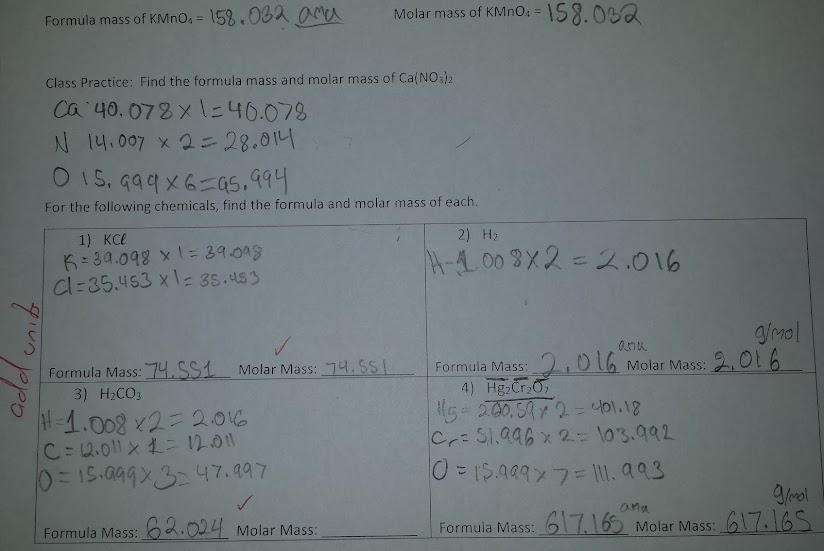 Formula mass of KMnO₄ = 158.032 amu Molar mass of KMnO₄ = 158.032
Class Practice: Find the formula mass and molar mass of Ca(NO₃)₂
Ca 40.078 x 1 = 40.078
N 14.007 x 2 = 28.014
O 15.999 x 6 = 95.994
For the following chemicals, find the formula and molar mass of each.
add units
1) KCl
K = 39.098 x 1 = 39.098
Cl = 35.453 x 1 = 35.453
Formula Mass: 74.551 Molar Mass: 74.551
2) H₂
H - 1.008 x 2 = 2.016
Formula Mass: 2.016 amu Molar Mass: 2.016 g/mol
3) H₂CO₃
H = 1.008 x 2 = 2.016
C = 12.011 x 1 = 12.011
O = 15.999 x 3 = 47.997
Formula Mass: 62.024 Molar Mass:
4) Hg₂Cr₂O₇
Hg = 200.59 x 2 = 401.18
Cr = 51.996 x 2 = 103.992
O = 15.999 x 7 = 111.993
Formula Mass: 617.165 amu Molar Mass: 617.165 g/mol